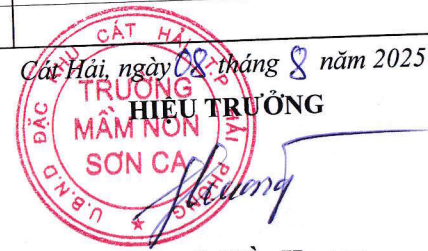 Cát Hải, ngày 08 tháng 8 năm 2025
HIỆU TRƯỞNG
U.B.N.D ĐẶC KHU CÁT HẢI TP HẢI PHÒNG
TRƯỜNG
MẦM NON
SƠN CA